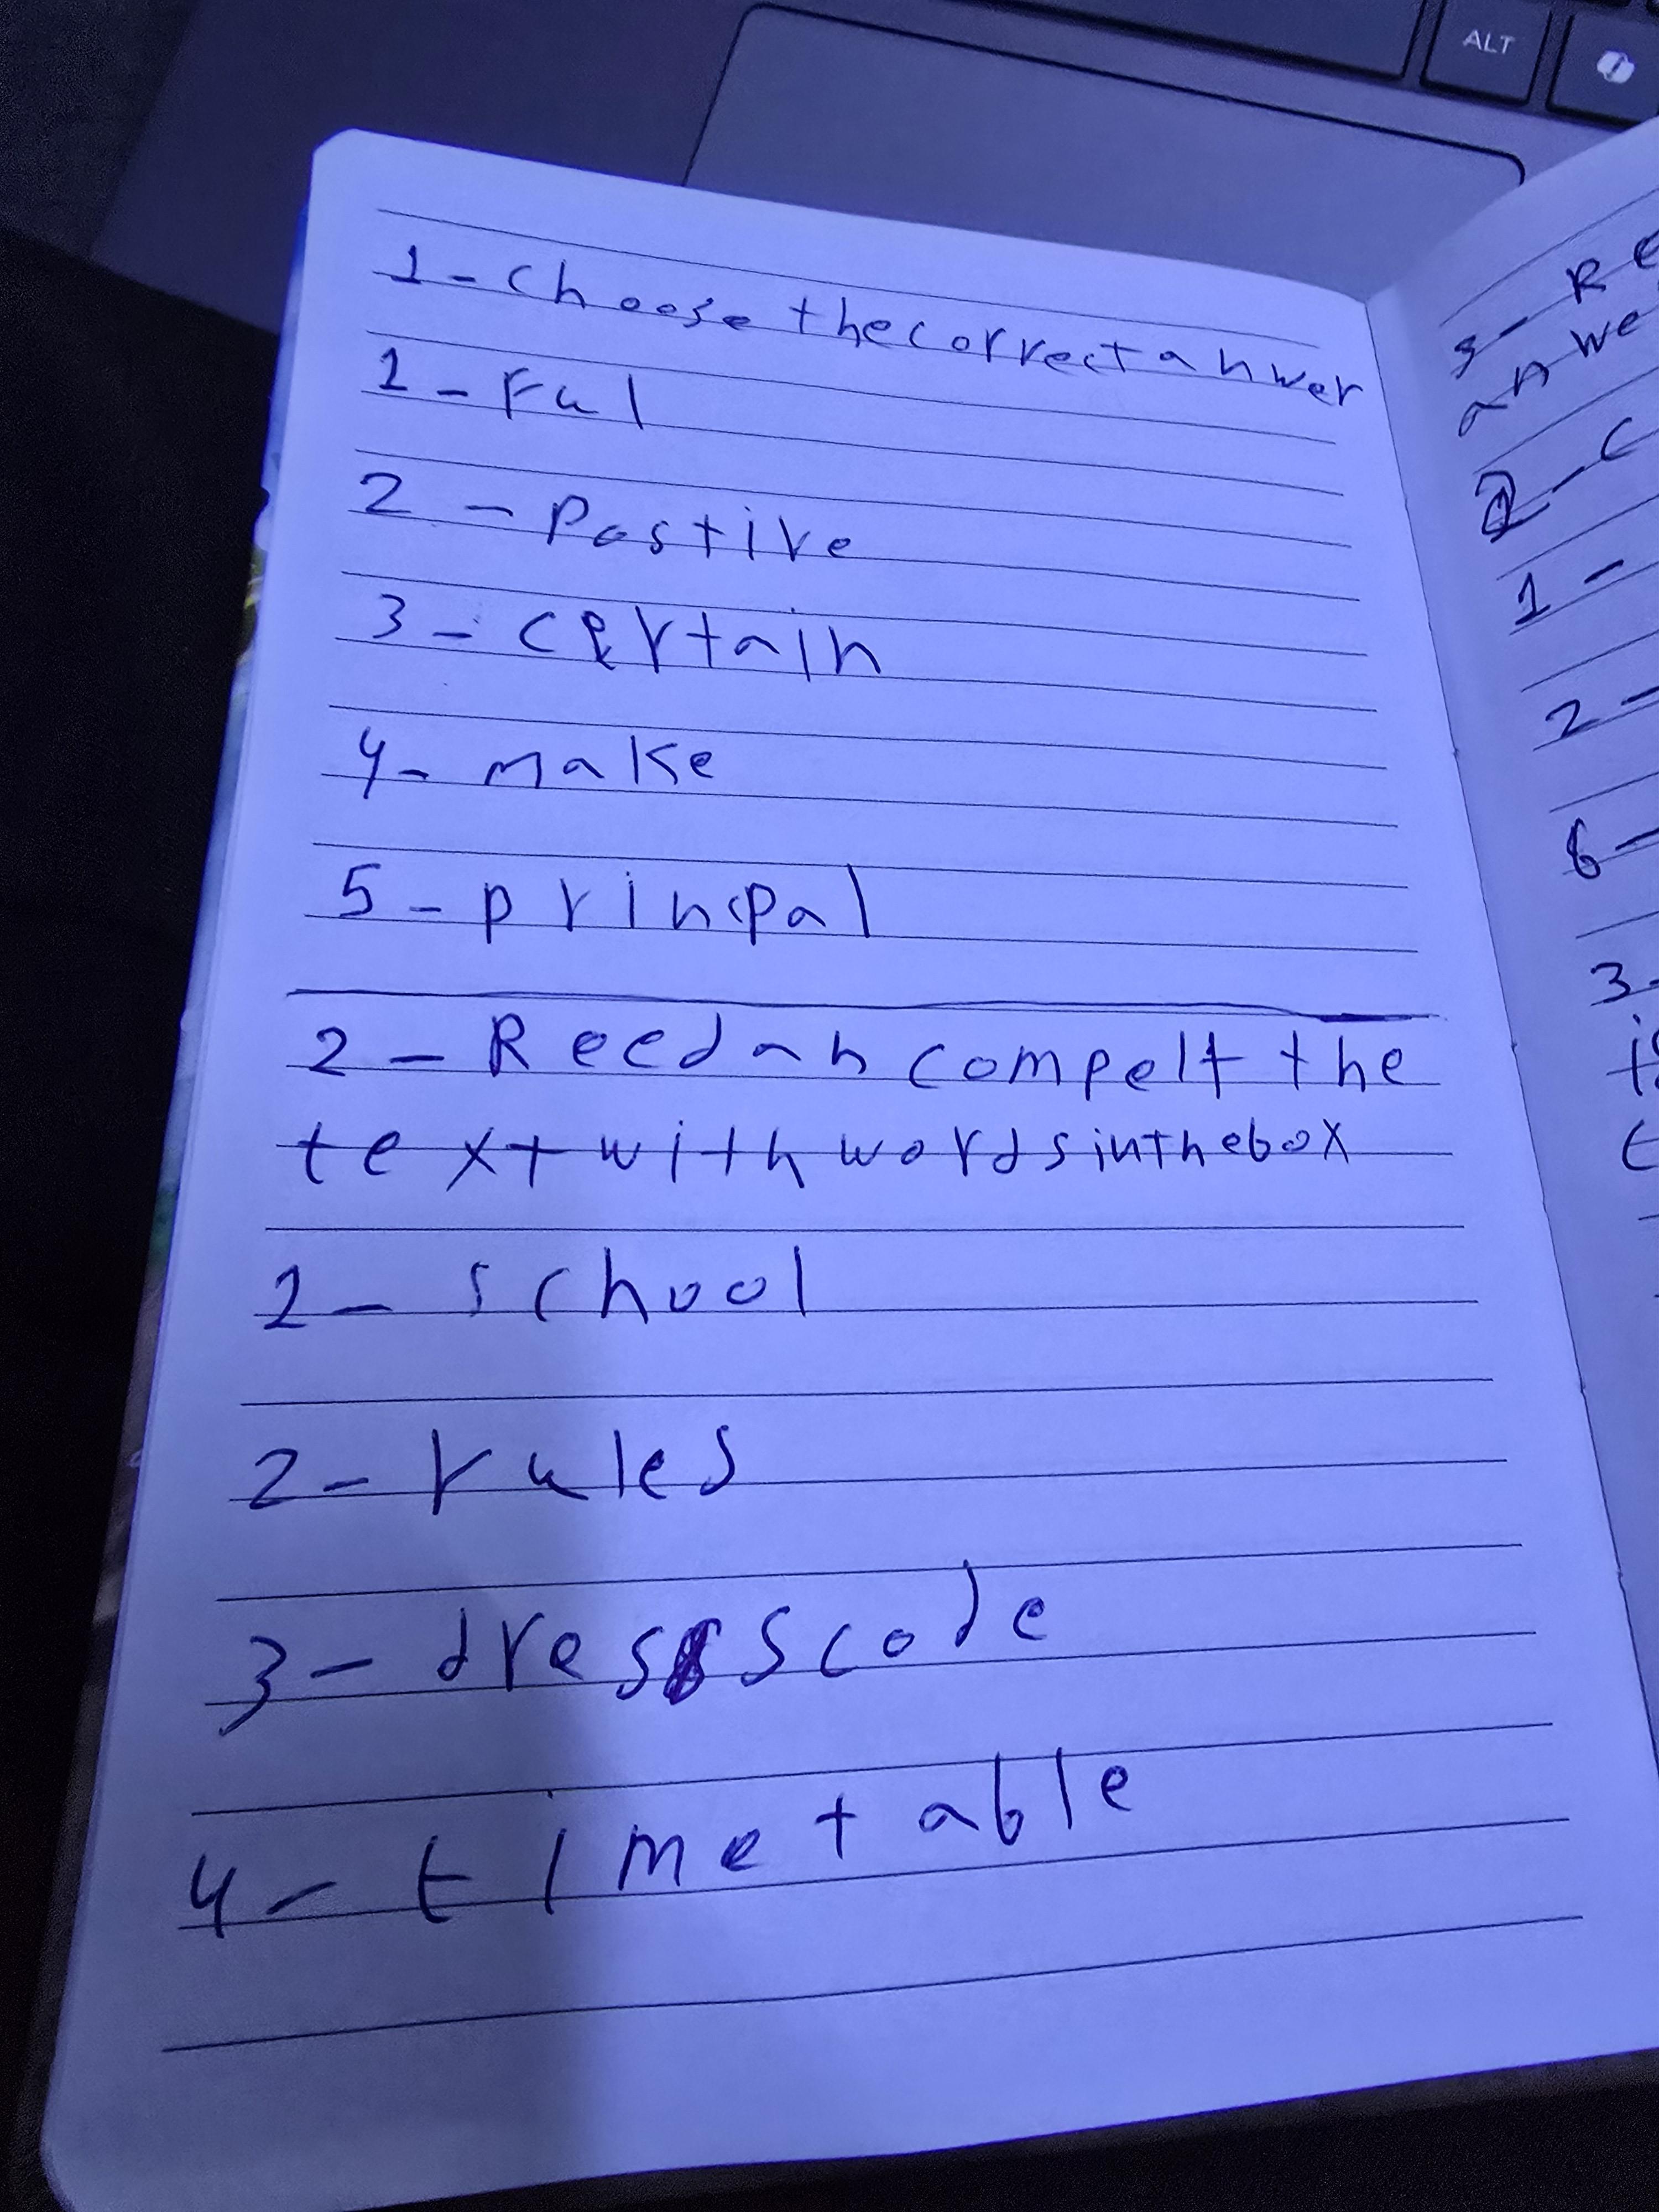 ALT
1 - choose the correct anwer
1 - Ful
2 - Postive
3 - certain
4 - make
5 - princpal
2 - Reed an compelt the
text with words in the box
1 - school
2 - rules
3 - dress code
4 - time table
3 - Re
anwe
2 - C
1 -
2 -
6 -
3 -